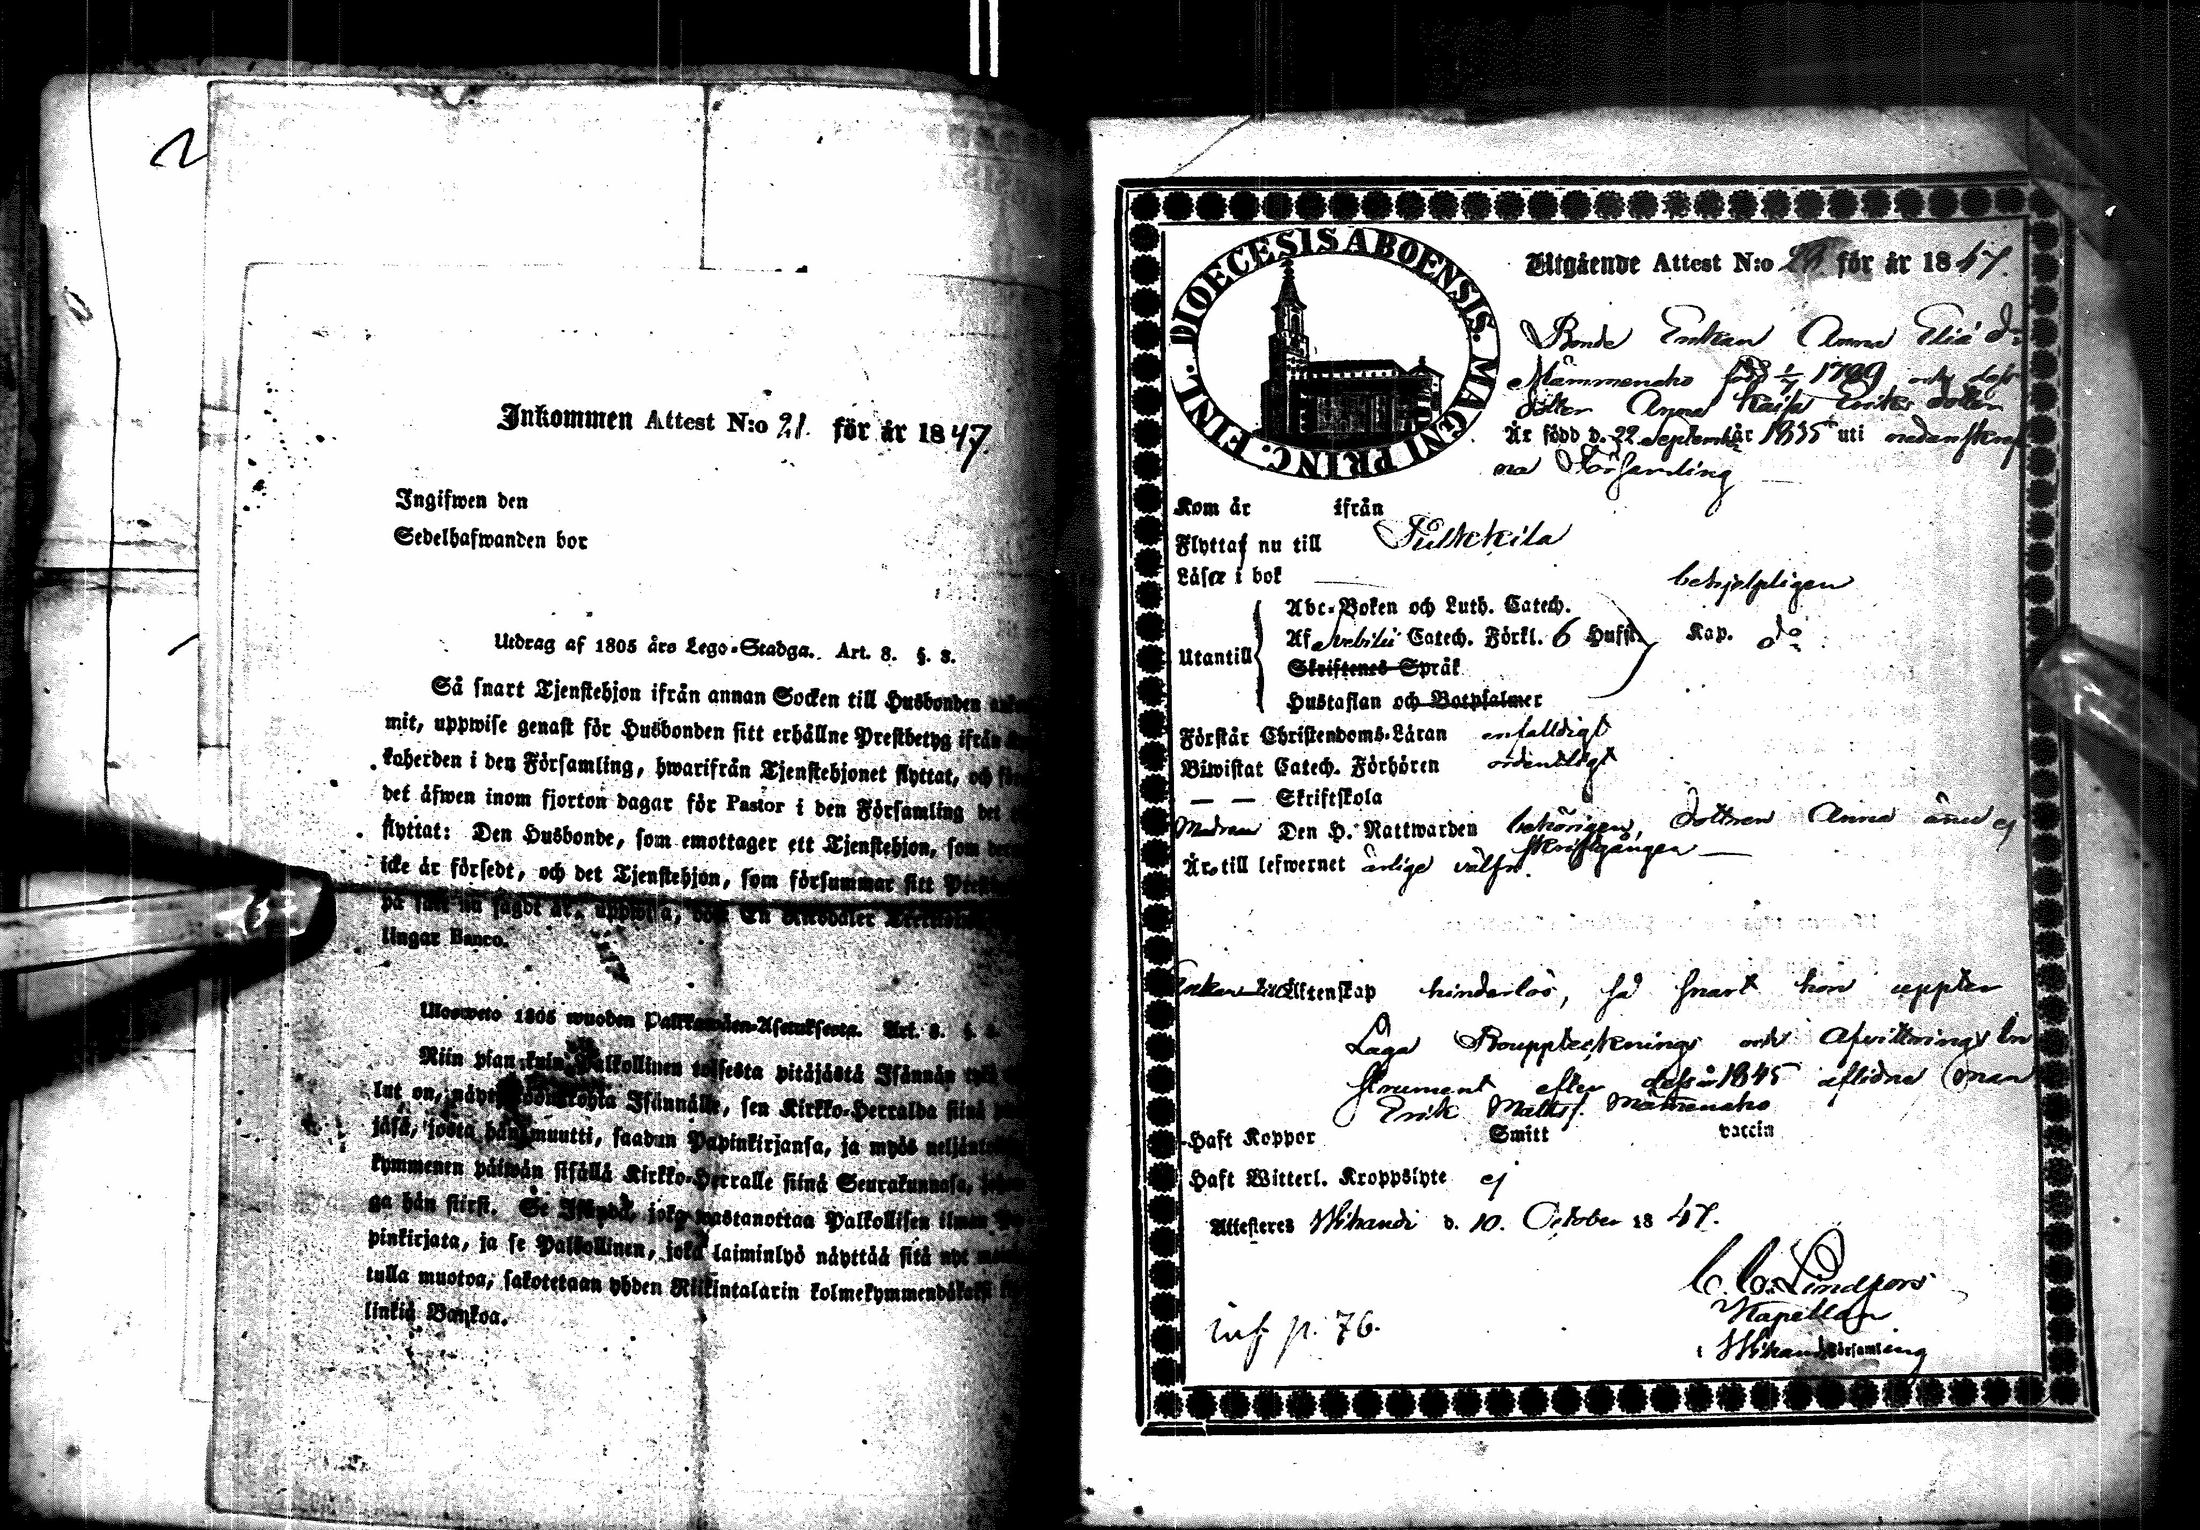 Inkommen Attest N:o 21. för år 1847.
Ingifwen den
Sedelhafwanden bor
Utdrag af 1805 års Lego-Stadga. Art. 8. §. 3.
Så snart Tjenstehjon ifrån annan Socken till Husbonden
mit, uppwise genast för Husbonden sitt erhållne Prestbetyg ifrån
koherden i den Församling, hwarifrån Tjenstehjonet flyttat, och
det äfwen inom fjorton dagar för Pastor i den Församling det
flyttat: Den Husbonde, som emottager ett Tjenstehjon, som
icke är försedt, och det Tjenstehjon, som försummar sitt
på sätt nu sagdt är, uppwisa, En Riksdaler
lingar Banco.
Ulosweto 1805 wuoden Palkkawäen-Asetuksesta. Art. 8. §.
Niin pian kuin Palkollinen toisesta pitäjästä Isännän
lut on, Isännälle, sen Kirkko-Herralda siinä
jäsä, josta hän muutti, saadun Papinkirjansa, ja myös
kymmenen päiwän sisällä Kirkko-Herralle siinä Seurakunnasa,
ga hän siirst. Se joka wastanottaa Palkollisen ilman
pinkirjata, ja se Palkollinen, joka laiminlyö näyttää sitä nyt
tulla muotoa, sakotetaan yhden Riikintalarin
linkiä Bankoa.
DIOECESIS ABOENSIS. MAGNI PRINC. FINL.
Utgående Attest N:o för år 1847.
Bonde Enkan Anna Eliæ d:
Mämmensko född 1/7 1799 och dess
dotter Anna Kaisa Eriks dotter
Är född d. 22 September år 1835 uti nedanskref
na Församling
Kom år ifrån
Flyttaf nu till Pulkkila
Läsa i bok behjelpligen
Utantill
Abc-Boken och Luth. Catech.
Af Svebilii Catech. Förkl. 6 Hufst. Kap. d:o
Skriftenes Språk
Hustaflan och Botpsalmer
Förstår Christendoms-Läran enfalldigt
Biwistat Catech. Förhören ordentligt
— — Skriftskola
Modran Den H. Nattwarden behörigen, dottren Anna ännu ej
skriftgången —
Är till lefwernet ärlige välfr.
Enkan till Ektenskap hinderlös, så snart hon uppter
Laga Bouppteknings och Afvittrings In
strument efter dess år 1845 aflidne man
Erik Matts. Mämmensko
Haft Koppor Smitt vaccin
Haft Witterl. Kroppslyte ej
Attesteres Wihandi d. 10. October 1847.
C. C. Lindfors
Kapellan
i Wihandi Församling
inf p. 76.